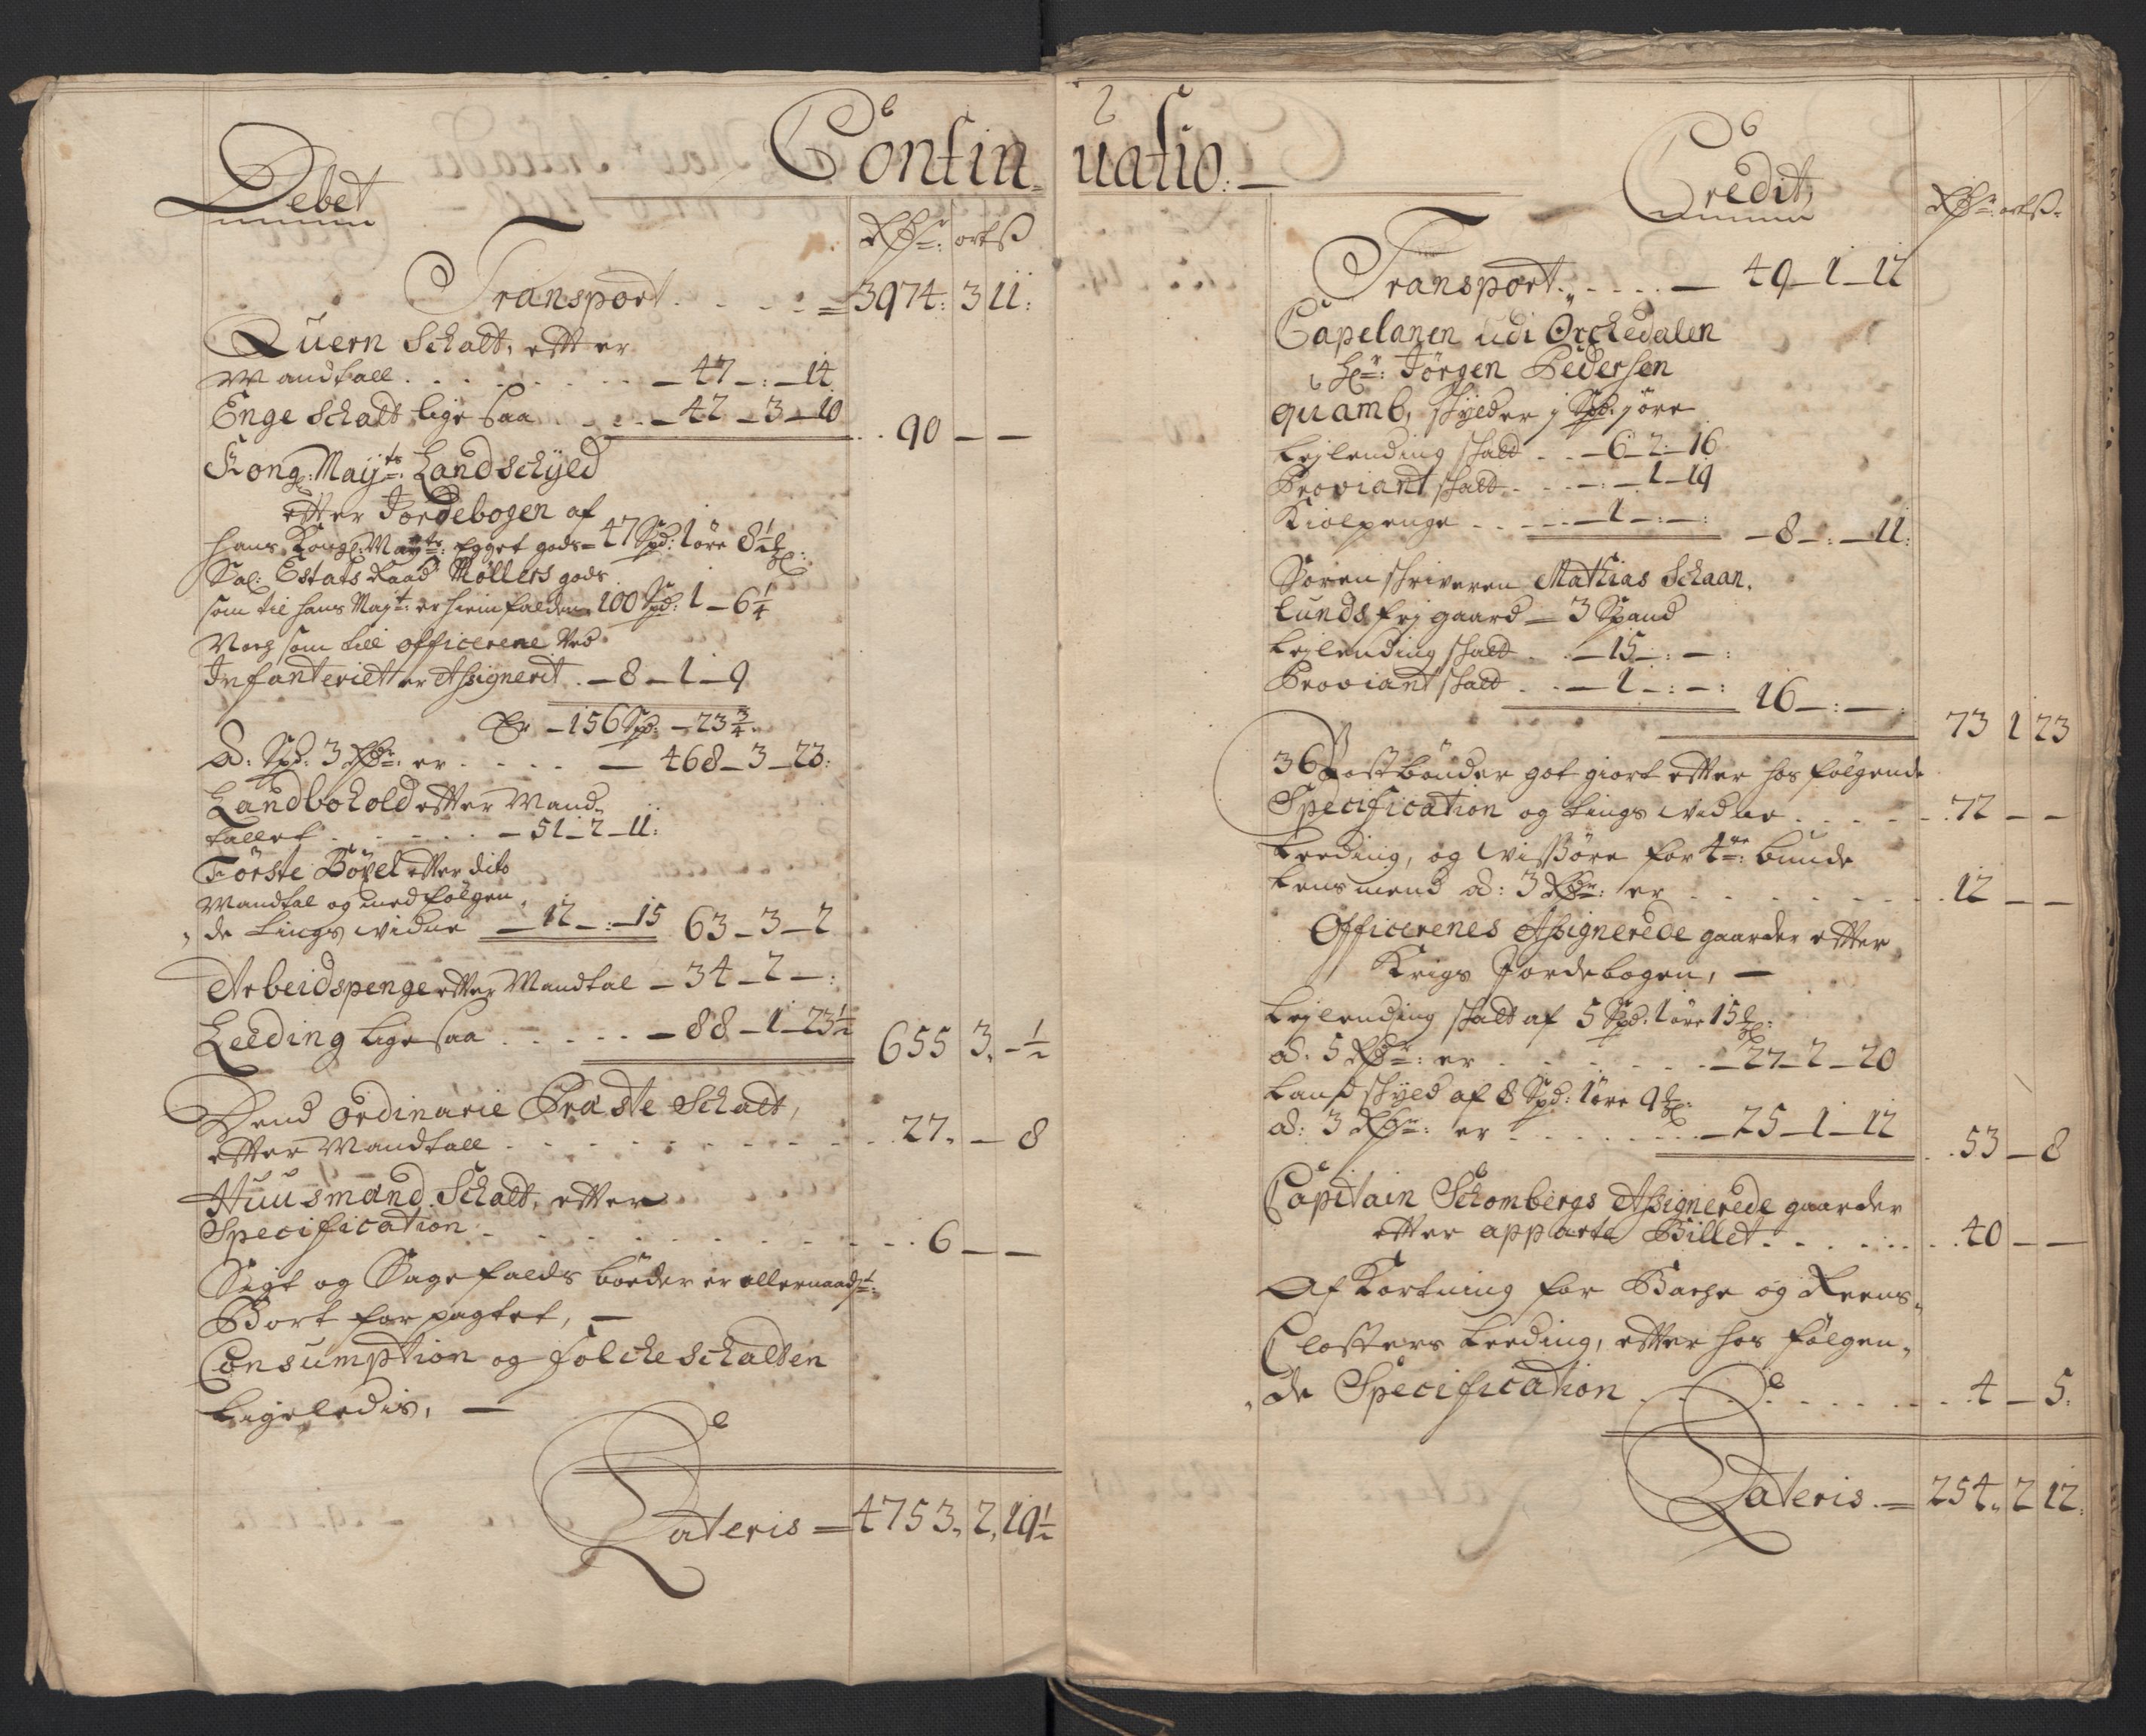 Continuatio.
Debet
Rdr: ort ß
Transport . . . . = 3974: 3 11:
Quern Schatt, etter
Mandtall . . . . . . . — 47 — : — 14
Enge Schatt lige saa . . . — 42 — 3 — 10 . . 90 — —
Kongl: Mayts: Landschyld
etter Jordebogen af
hans Kongl: Mayts: Egget gods = 47 Spd: 1 öre 8½ l:
Sal: Estats Raad Møllers gods
som til hans Mayt: er hiemfalden 100 Spd: 1 — 6¼
Noch som till officerene ved
Infanteriet er Assignerit . — 8 — 1 — 9
Er — 156 Spd: — 23¾
A: Spd: 3 Rdr: er . . . . — 468 — 3 — 23:
Landbohold etter Mand-
tallet . . . . . . — 51 — 2 — 11:
Förste Böyel etter dito
Mandtal og med følgen-
de tings widne — 12 — : — 15 63 — 3 — 2
Arbeidspenge etter Mandtal — 34 — 2 — :
Leeding lige saa . . . . . — 88 — 1 — 23½ 655 3. — ½
Dend ordinarie Præste Schatt,
etter Mandtall . . . . . . . . . . . 27. — 8
Huusmænd Schatt, etter
Specification . . . . . . . . . . . 6 — —
Sigt og Sagefalds böeder er allernaadst:
Bort forpagtet, —
Consumption og Folche Schatten
Ligeledis, —
Lateris = 4753. 2. 19½
2
Credit
Rdr: ort ß.
Transport . . . . — 49 — 1 — 12
Capelanen udi Orchedalen
Hr: Jörgen Pedersen
quamb, skylder 1 Spd: 1 öre
Lejlending skatt . . — 6 — 2 — 16
Proviant skatt . . . — : — 1 — 19
Kiolpenge . . . . . — 1 — : — : — 8 — : — 11:
Sorenskriveren Mathias Schaan.
lunds frj gaard — 3 Spand
Lejlending skatt . . — 15 — : — :
Proviant skatt . . — 1 — : — : 16 — : — :
73 1 23
36 Postbönder got giort etter hos følgende
Specification og tings widne . . . . . . 72 — —
Leeding, og wissöre for 4re: bunde
Lensmend a: 3 Rdr: er . . . . . . . . 12 — —
Officerenes Assignerede gaarder etter
Krigs Jordebogen, —
Lejlending skatt af 5 Spd: 1 öre 15 l:
a: 5 Rdr: er . . . . . . . — 27 — 2 — 20
Landskyld af 8 Spd: 1 öre 9 l:
a: 3 Rdr: er . . . . . . . — 25 — 1 — 12 . . 53 — 8
Capitain Schombergs Assignerede gaarder
etter apparte Billet . . . . . . . . 40 — —
Af Kortning for Bache og Reens-
Closters Leeding, etter hos følgen-
de Specification . . . . . . . . . . 4 — 5.
Lateris . = 254. 2 12.